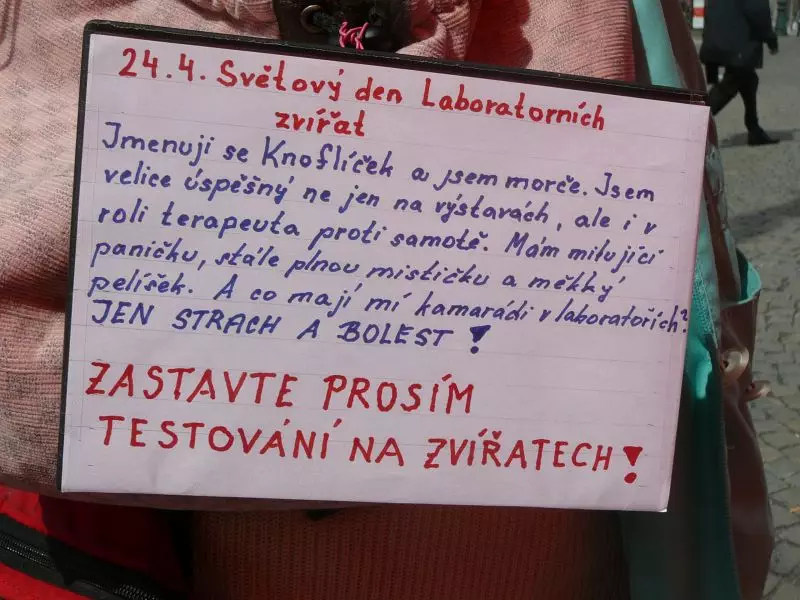 24.4. Světový den Laboratorních
zvířat
Jmenuji se Knoflíček a jsem morče. Jsem
velice úspěšný ne jen na výstavách, ale i v
roli terapeuta proti samotě. Mám milující
paničku, stále plnou mističku a měkký
pelíšek. A co mají mí kamarádi v laboratořích?
JEN STRACH A BOLEST !
ZASTAVTE PROSÍM
TESTOVÁNÍ NA ZVÍŘATECH!